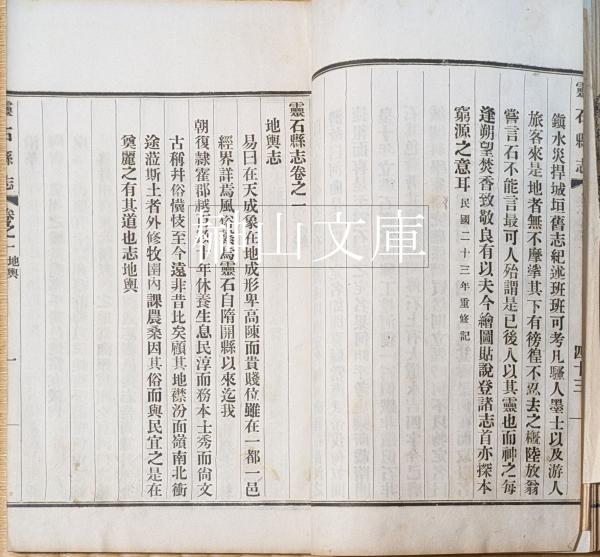 靈石縣志
四十三
鎭水災捍城垣舊志紀述班班可考凡騷人墨士以及游人
旅客來是地者無不摩挲其下有徬徨不忍去之槪陸放翁
嘗言石不能言最可人殆謂是已後人以其靈也而神之每
逢朔望焚香致敬良有以夫今繪圖貼說登諸志首亦探本
窮源之意耳民國二十三年重修記
靈石縣志卷之一
地輿志
易曰在天成象在地成形卑高陳而貴賤位雖在一都一邑
經界詳焉風俗 焉靈石自隋開縣以來迄我
朝復隸霍郡越 年休養生息民淳而務本士秀而尙文
古稱幷俗儀 至今遠非昔比矣顧其地襟汾面嶺南北衝
途蒞斯土者外修牧圉內課農桑因其俗而與民宜之是在
奠麗之有其道也志地輿
靈石縣志
卷之一
地輿
一
山文庫